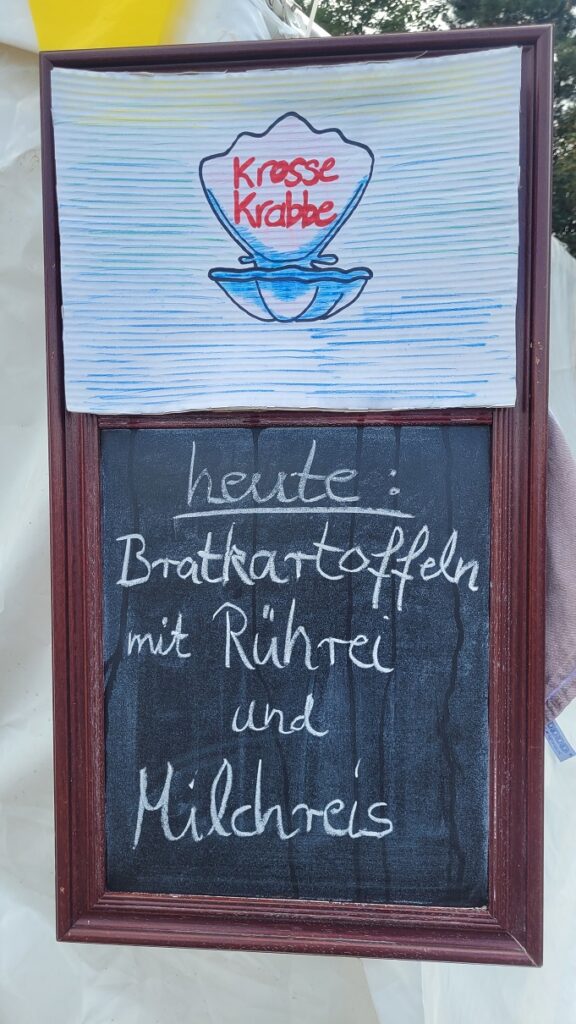 Krosse
Krabbe
heute:
Bratkartoffeln
mit Rührei
und
Milchreis